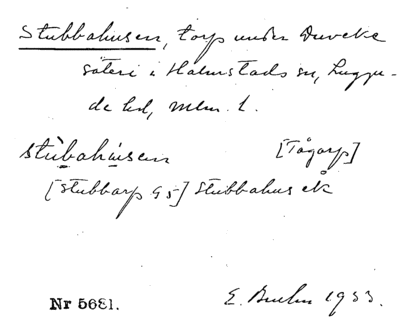 Stubbahusen, torp under Duveke
säteri i Halmstads sn, Luggu-
de hd, Mlm. l.
stùbahúsen [Tågarp]
[Stubbarp G5] Stubbahus ek
Nr 5681. E. Bruhn 1933.